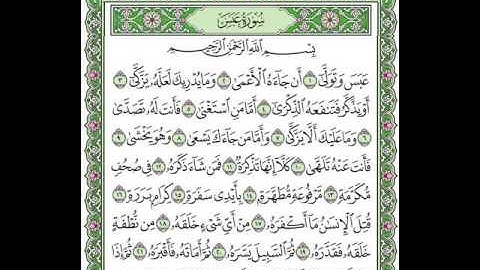 سُورَةُ عَبَسَ
بِسْمِ ٱللَّهِ ٱلرَّحْمَٰنِ ٱلرَّحِيمِ
عَبَسَ وَتَوَلَّىٰٓ ١ أَن جَآءَهُ ٱلْأَعْمَىٰ ٢ وَمَا يُدْرِيكَ لَعَلَّهُۥ يَزَّكَّىٰٓ ٣
أَوْ يَذَّكَّرُ فَتَنفَعَهُ ٱلذِّكْرَىٰٓ ٤ أَمَّا مَنِ ٱسْتَغْنَىٰ ٥ فَأَنتَ لَهُۥ تَصَدَّىٰ
٦ وَمَا عَلَيْكَ أَلَّا يَزَّكَّىٰ ٧ وَأَمَّا مَن جَآءَكَ يَسْعَىٰ ٨ وَهُوَ يَخْشَىٰ ٩
فَأَنتَ عَنْهُ تَلَهَّىٰ ١٠ كَلَّآ إِنَّهَا تَذْكِرَةٌ ١١ فَمَن شَآءَ ذَكَرَهُۥ ١٢ فِى صُحُفٍ
مُّكَرَّمَةٍ ١٣ مَّرْفُوعَةٍ مُّطَهَّرَةٍۭ ١٤ بِأَيْدِى سَفَرَةٍ ١٥ كِرَامٍۭ بَرَرَةٍ ١٦
قُتِلَ ٱلْإِنسَٰنُ مَآ أَكْفَرَهُۥ ١٧ مِنْ أَىِّ شَىْءٍ خَلَقَهُۥ ١٨ مِن نُّطْفَةٍ
خَلَقَهُۥ فَقَدَّرَهُۥ ١٩ ثُمَّ ٱلسَّبِيلَ يَسَّرَهُۥ ٢٠ ثُمَّ أَمَاتَهُۥ فَأَقْبَرَهُۥ ٢١ ثُمَّ إِذَا